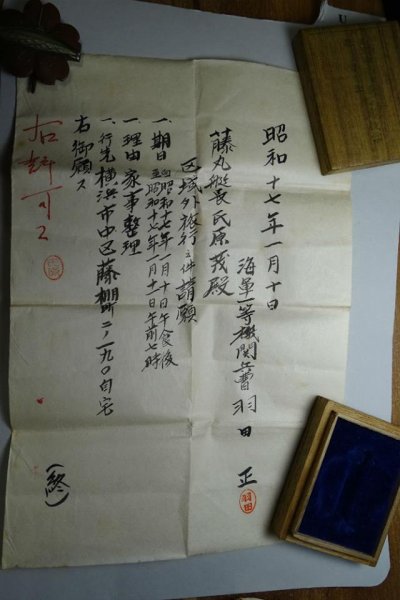 昭和十七年一月十日
海軍一等機関兵曹 羽田 正
羽田
藤丸艇長氏原茂殿
区域外旅行之件請願
一、期日 自昭和十七年一月十日午食後
至昭和十七年一月十一日午前七時
一、理由 家事整理
一、行先 横浜市中区藤棚町二ノ一九〇自宅
右御願ス
(終)
右許可ス